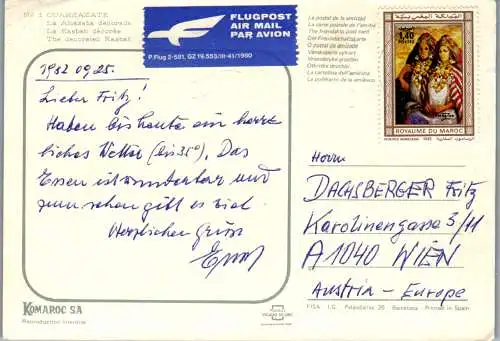 Nº 1 OUARZAZATE
La Alkazaba decorada
La Kasbah décorée
The decorated Kasbah
FLUGPOST
AIR MAIL
PAR AVION
P. Flug 2-581, GZ 19.553/III-41/1980
La postal de la amistad
La carte postale de l'amitié
The friendship post card
Die Freundschaftskarte
O postal da amizade
Vänskapens vykort
Vriendelijke groeten
La cartolina dell'amicizia
1,40
ROYAUME DU MAROC
1982 09,25.
Lieber Fritz!
Haben bis heute ein herr-
liches Wetter (bis 35°). Das
Essen ist wunderbar und
zum sehen gibt es viel.
Herzlichen Gruss
Herrn
DACHSBERGER Fritz
Karolinengasse 3/11
A 1040 WIEN
Austria - Europe
KOMAROC SA
Reproduction interdite
FISA I.G. Palaudarias, 26 - Barcelona - Printed in Spain